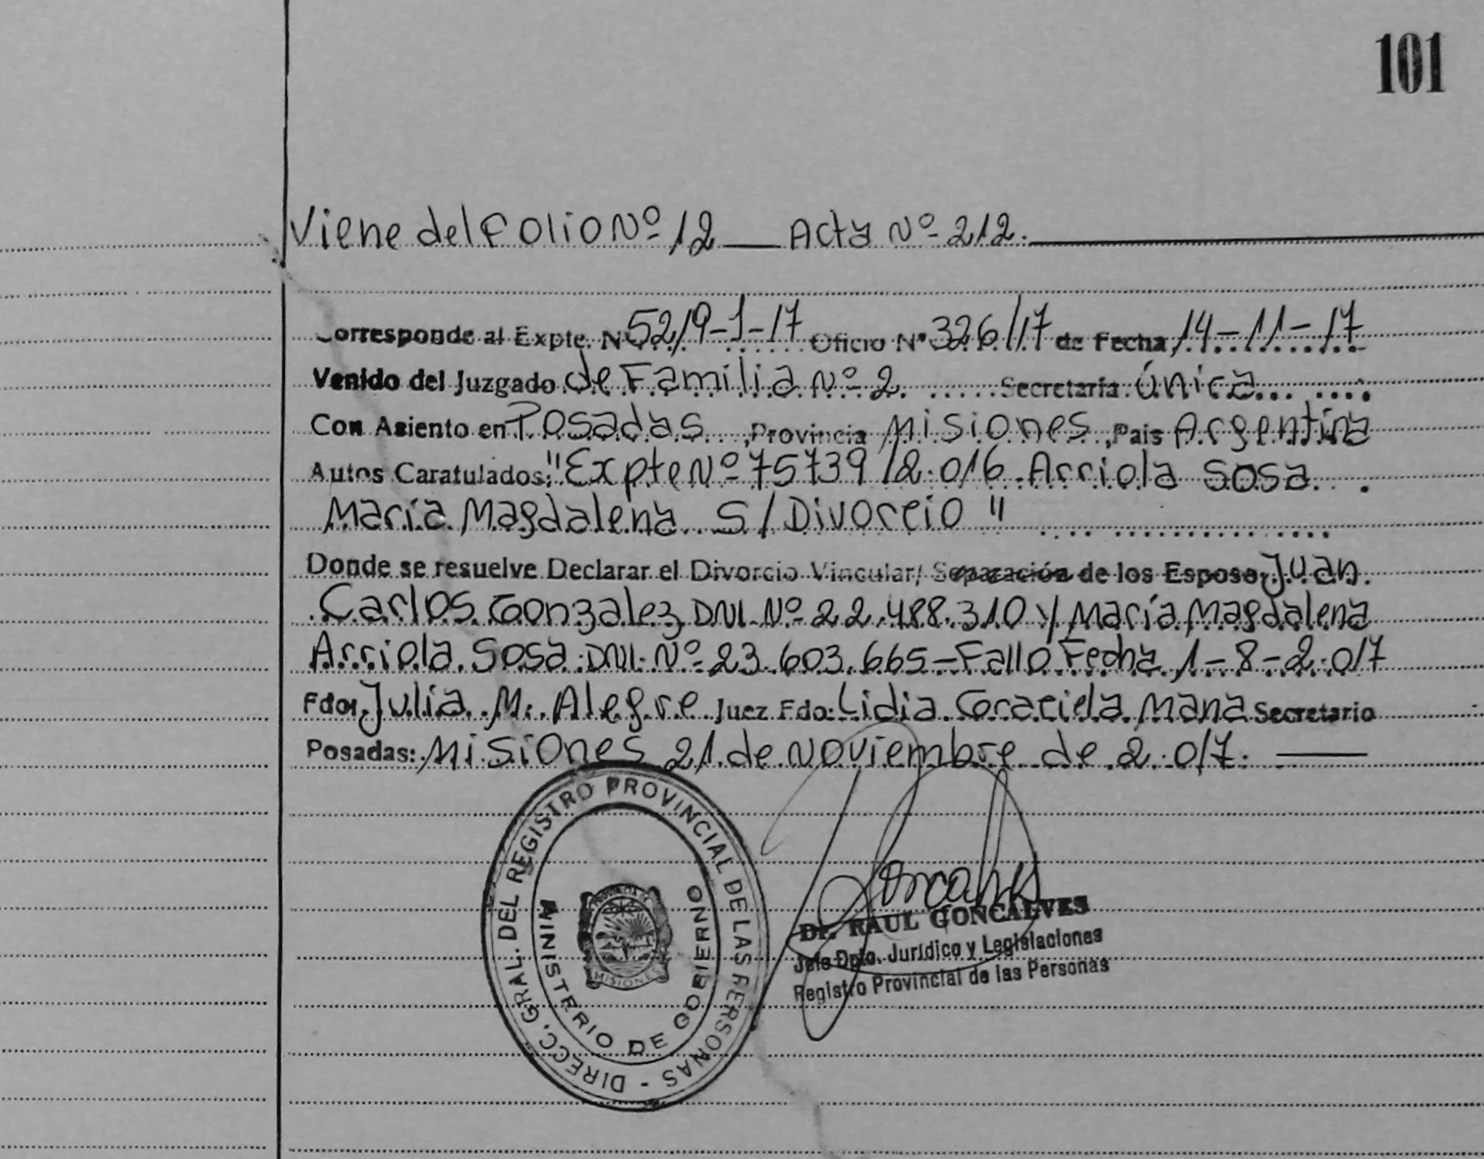 101
Viene del Folio Nº 12 — Acta Nº 212.
Corresponde al Expte. Nº 5219-1-17 Oficio Nº 326/17 de Fecha 14-11-17
Venido del Juzgado de Familia Nº 2. Secretaría Única
Con Asiento en Posadas, Provincia Misiones, Pais Argentina
Autos Caratulados: "Expte Nº 75739/2.016. Arriola Sosa
María Magdalena S/Divorcio"
Donde se resuelve Declarar el Divorcio Vincular/ Separación de los Esposos Juan
Carlos Gonzalez DNI. Nº 22.488.310 y María Magdalena
Arriola Sosa DNI. Nº 23.603.665 - Fallo Fecha 1-8-2.017
Fdo: Julia M. Alegre Juez Fdo: Lidia Graciela Mana Secretario
Posadas: Misiones 21 de Noviembre de 2.017.
DIRECC. GRAL. DEL REGISTRO PROVINCIAL DE LAS PERSONAS -
MINISTERIO DE GOBIERNO
MISIONES
Dr. RAUL GONCALVES
Jefe Dpto. Jurídico y Legislaciones
Registro Provincial de las Personas